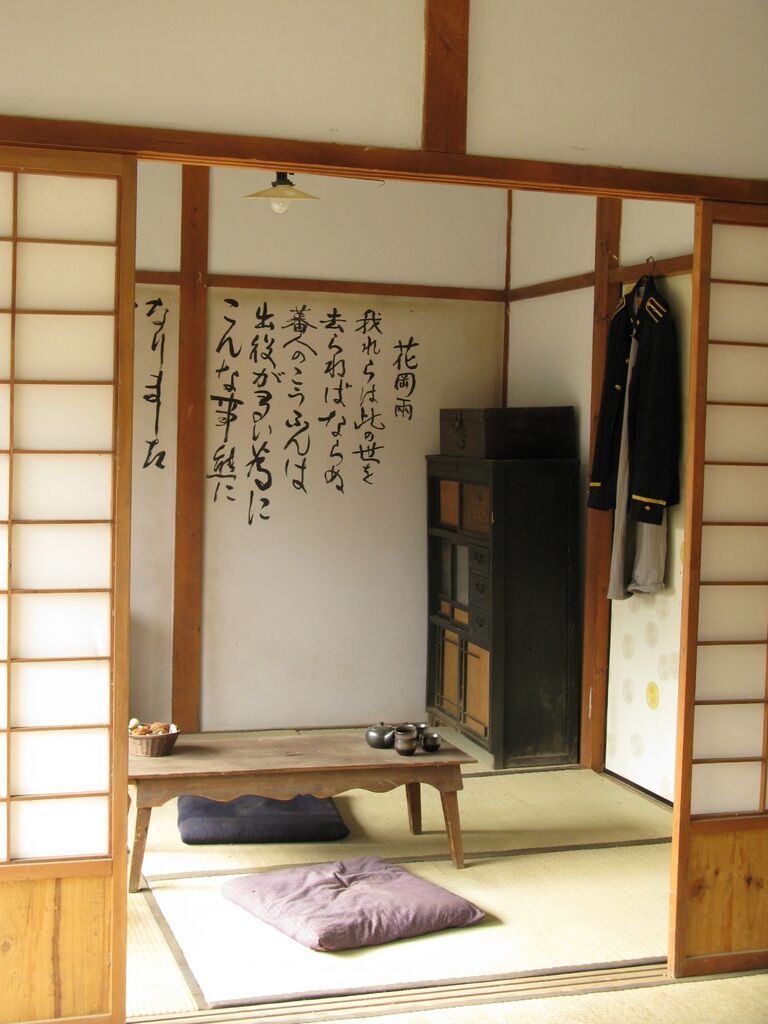 花岡両
我れらは此の世を
去らねばならぬ
蕃人のこうふんは
出役が多い為に
こんな事態に
なりました